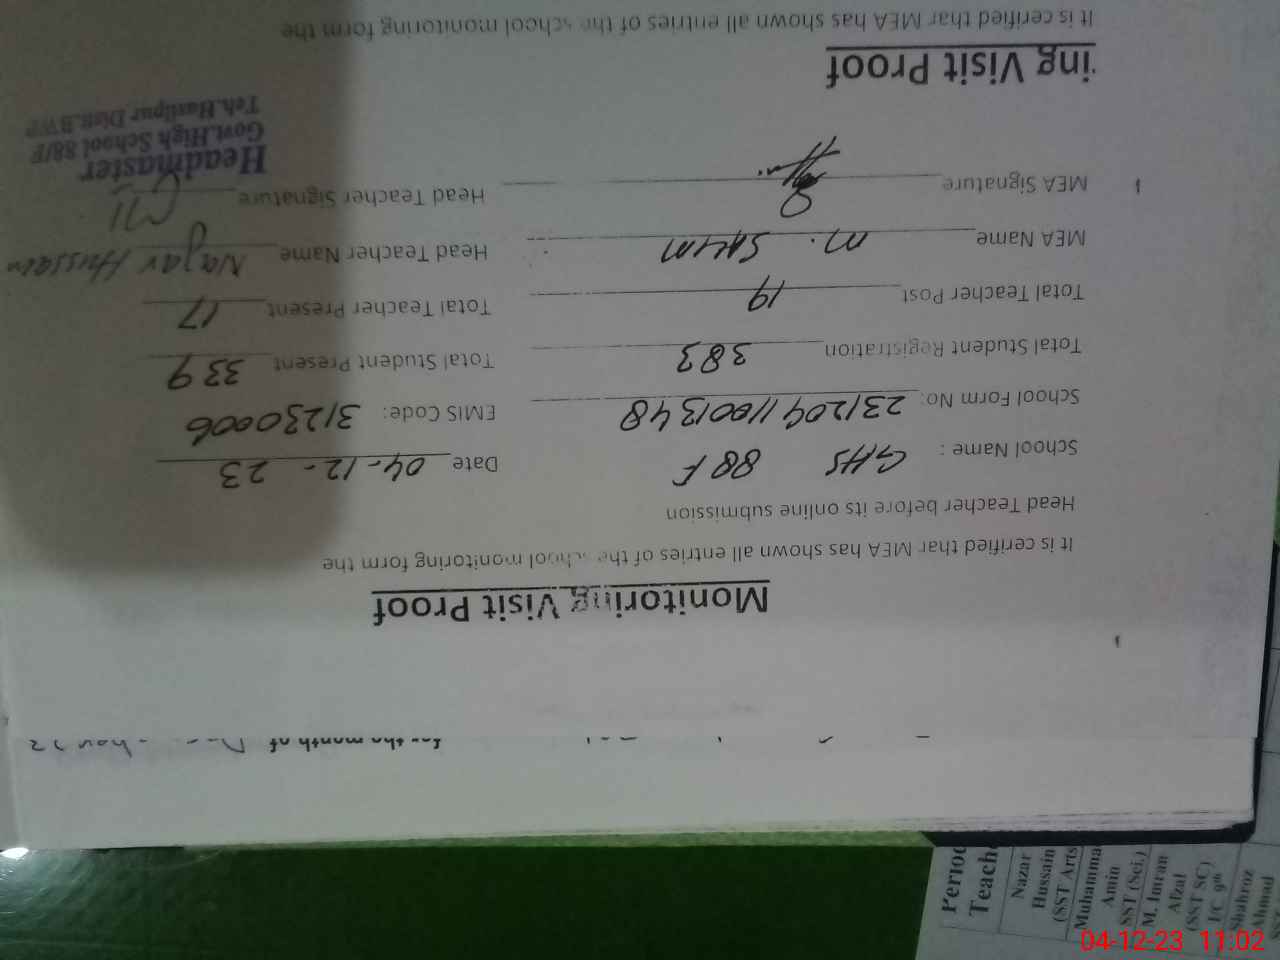 for the month of
Monitoring Visit Proof
It is cerified thar MEA has shown all entries of the school monitoring form the
Head Teacher before its online submission
School Name : GHS 88 F Date 04-12-23
School Form No: 23120411001348 EMIS Code: 31230006
Total Student Registration 383 Total Student Present 339
Total Teacher Post 19 Total Teacher Present 17
MEA Name M. Salim Head Teacher Name Nazar Hussain
MEA Signature Head Teacher Signature
Headmaster
Govt.High School 88/F
Teh.Hasilpur Distt.BWP
ing Visit Proof
It is cerified thar MEA has shown all entries of the school monitoring form the
Period
Teach
Nazar
Hussain
(SST Arts
Muhamma
Amin
SST (Sci.)
M. Imran
Afzal
(SST SC)
I/C 9th
Shahroz
Ahmad
04-12-23 11:02